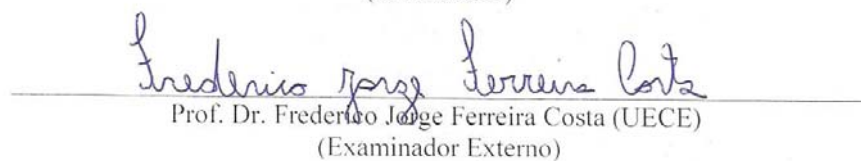 Frederico Jorge Ferreira Costa
Prof. Dr. Frederico Jorge Ferreira Costa (UECE)
(Examinador Externo)